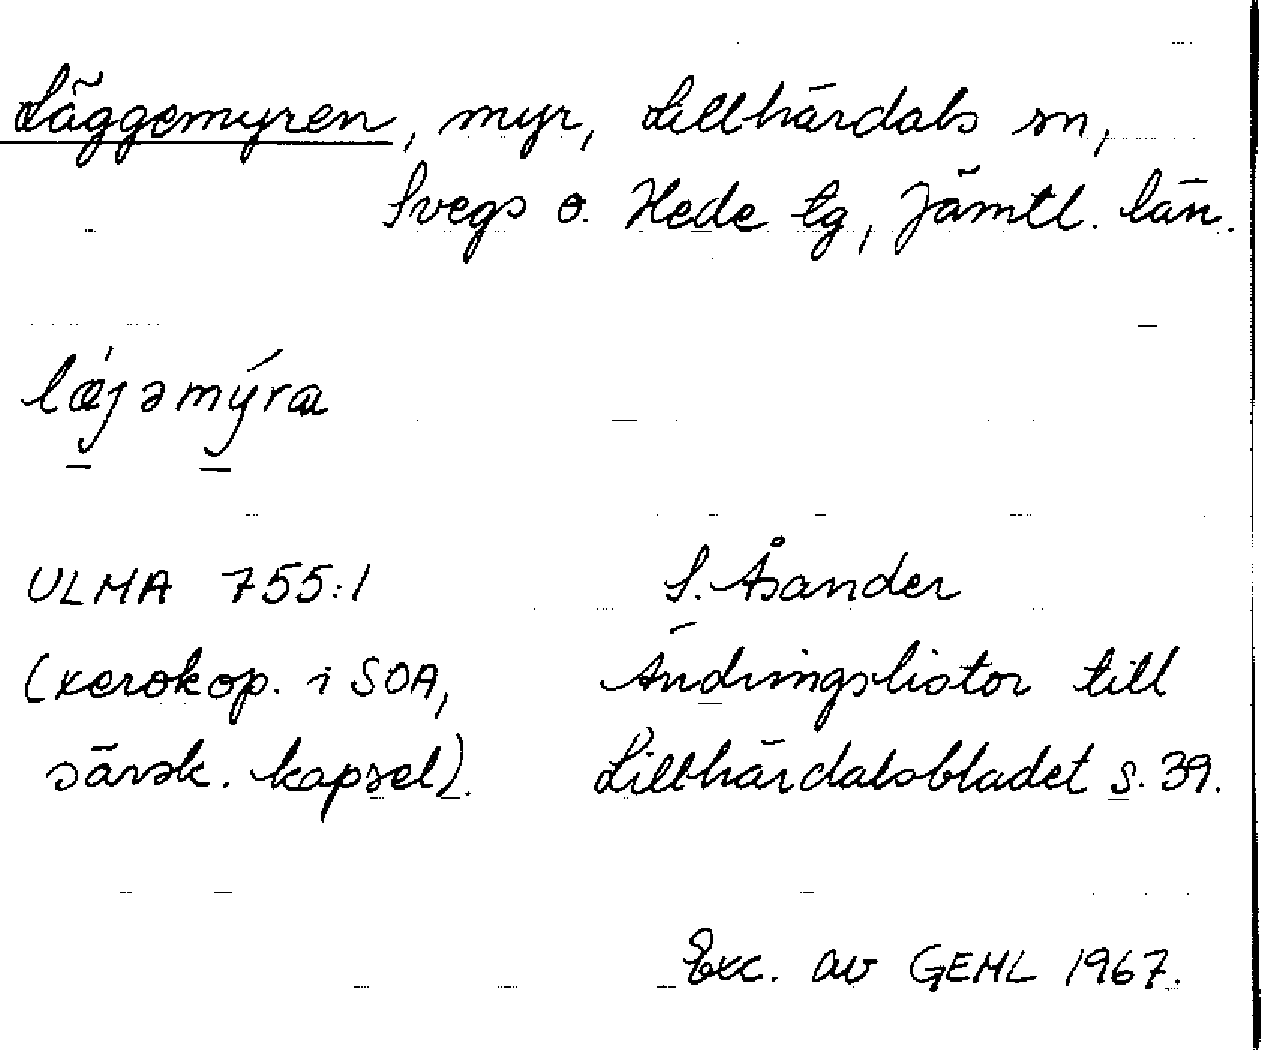 Läggemyren, myr, Lillhärdals sn,
Svegs o. Hede tg, Jämtl. län.
lǽjəmýra
ULMA 755:1 S. Åsander
(xerokop. i SOA, Ändringslistor till
särsk. kapsel). Lillhärdalsbladet s. 39.
Exc. av GEHL 1967.